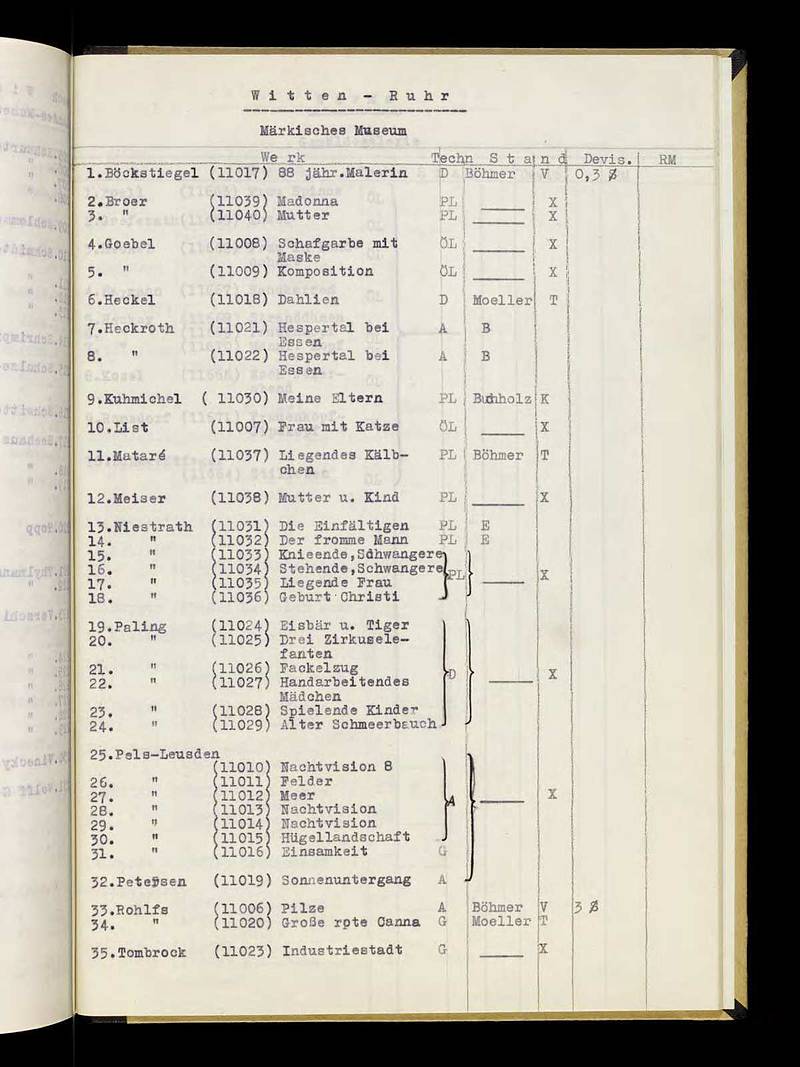 Witten - Ruhr
Märkisches Museum
Werk Techn Stand Devis. RM
1.Böckstiegel (11017) 88 jähr.Malerin D Böhmer V 0,3 $
2.Broer (11039) Madonna PL ____ X
3. " (11040) Mutter PL ____ X
4.Goebel (11008) Schafgarbe mit ÖL ____ X
Maske
5. " (11009) Komposition ÖL ____ X
6.Heckel (11018) Dahlien D Moeller T
7.Heckroth (11021) Hespertal bei A B
Essen
8. " (11022) Hespertal bei A B
Essen
9.Kuhmichel ( 11030) Meine Eltern PL Buchholz K
10.List (11007) Frau mit Katze ÖL ____ X
11.Mataré (11037) Liegendes Kälb- PL Böhmer T
chen
12.Meiser (11038) Mutter u. Kind PL ____ X
13.Niestrath (11031) Die Einfältigen PL E
14. " (11032) Der fromme Mann PL E
15. " (11033) Knieende,Schwangere
16. " (11034) Stehende,Schwangere PL ____ X
17. " (11035) Liegende Frau
18. " (11036) Geburt Christi
19.Paling (11024) Eisbär u. Tiger
20. " (11025) Drei Zirkusele-
fanten
21. " (11026) Fackelzug D ____ X
22. " (11027) Handarbeitendes
Mädchen
23. " (11028) Spielende Kinder
24. " (11029) Alter Schmeerbauch
25.Pels-Leusden
(11010) Nachtvision 8
26. " (11011) Felder
27. " (11012) Meer A ____ X
28. " (11013) Nachtvision
29. " (11014) Nachtvision
30. " (11015) Hügellandschaft
31. " (11016) Einsamkeit G
32.Petersen (11019) Sonnenuntergang A
33.Rohlfs (11006) Pilze A Böhmer V 3 $
34. " (11020) Große rote Canna G Moeller T
35.Tombrock (11023) Industriestadt G ____ X